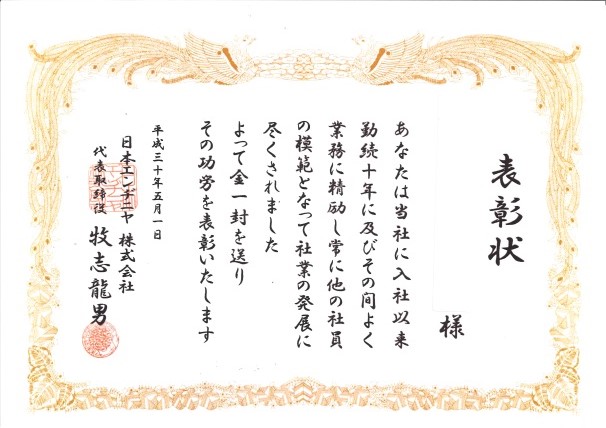 表彰状
様
あなたは当社に入社以来
勤続十年に及びその間よく
業務に精励し常に他の社員
の模範となって社業の発展に
尽くされました
よって金一封を送り
その功労を表彰いたします
平成三十年五月一日
日本エンヂニヤ株式会社
代表取締役 牧志龍男